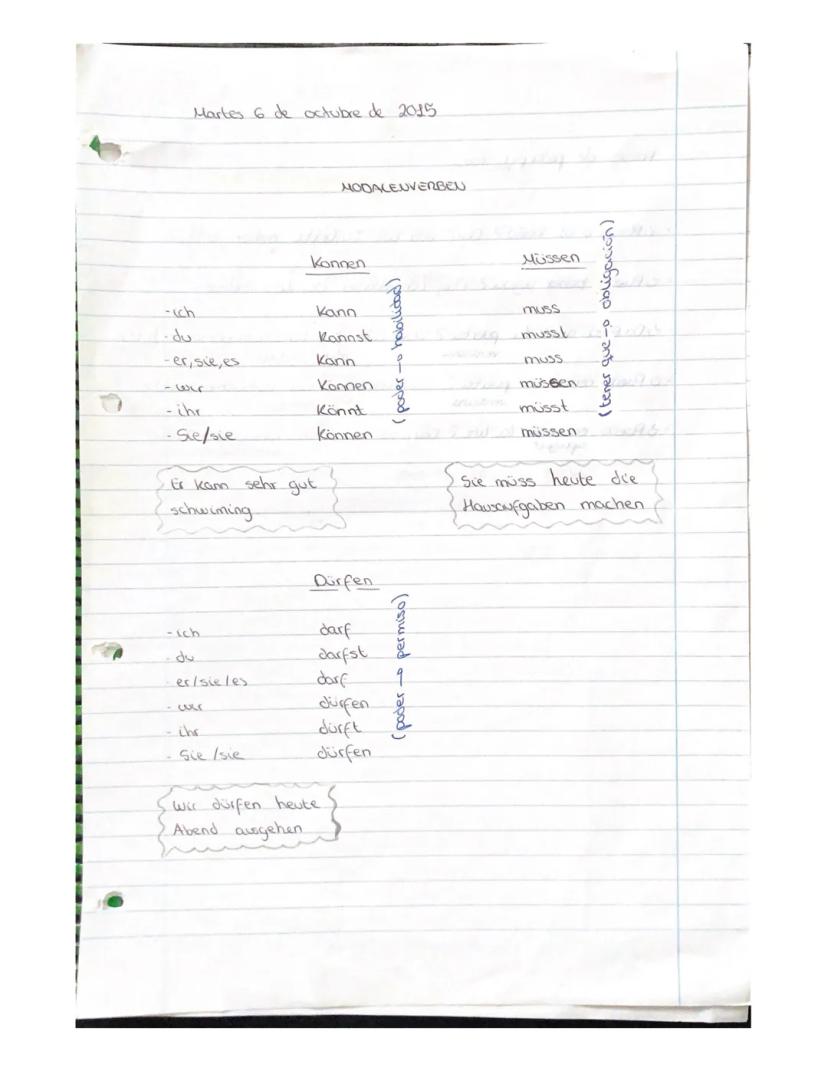 Martes 6 de octubre de 2015
MODALENVERBEN
Konnen Müssen
-ich Kann muss
-du Kannst musst
-er, sie, es Kann muss
-wir Konnen müssen
-ihr Könnt müsst
-Sie/sie Können müssen
(poder → habilidad)
(tener que → obligación)
Er kann sehr gut
schwiming
Sie müss heute die
Hausaufgaben machen
Dürfen
-ich darf
-du darfst
er/sie/es darf
-wir dürfen
-ihr dürft
-Sie/sie dürfen
(poder → permiso)
Wir dürfen heute
Abend ausgehen